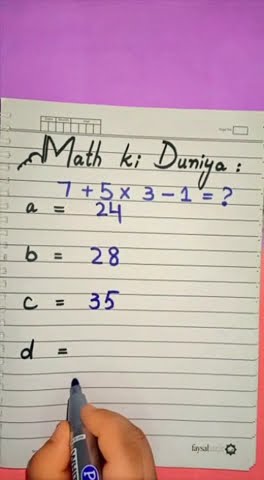 Math ki Duniya :
7 + 5 x 3 - 1 = ?
a = 24
b = 28
c = 35
d =
faysal